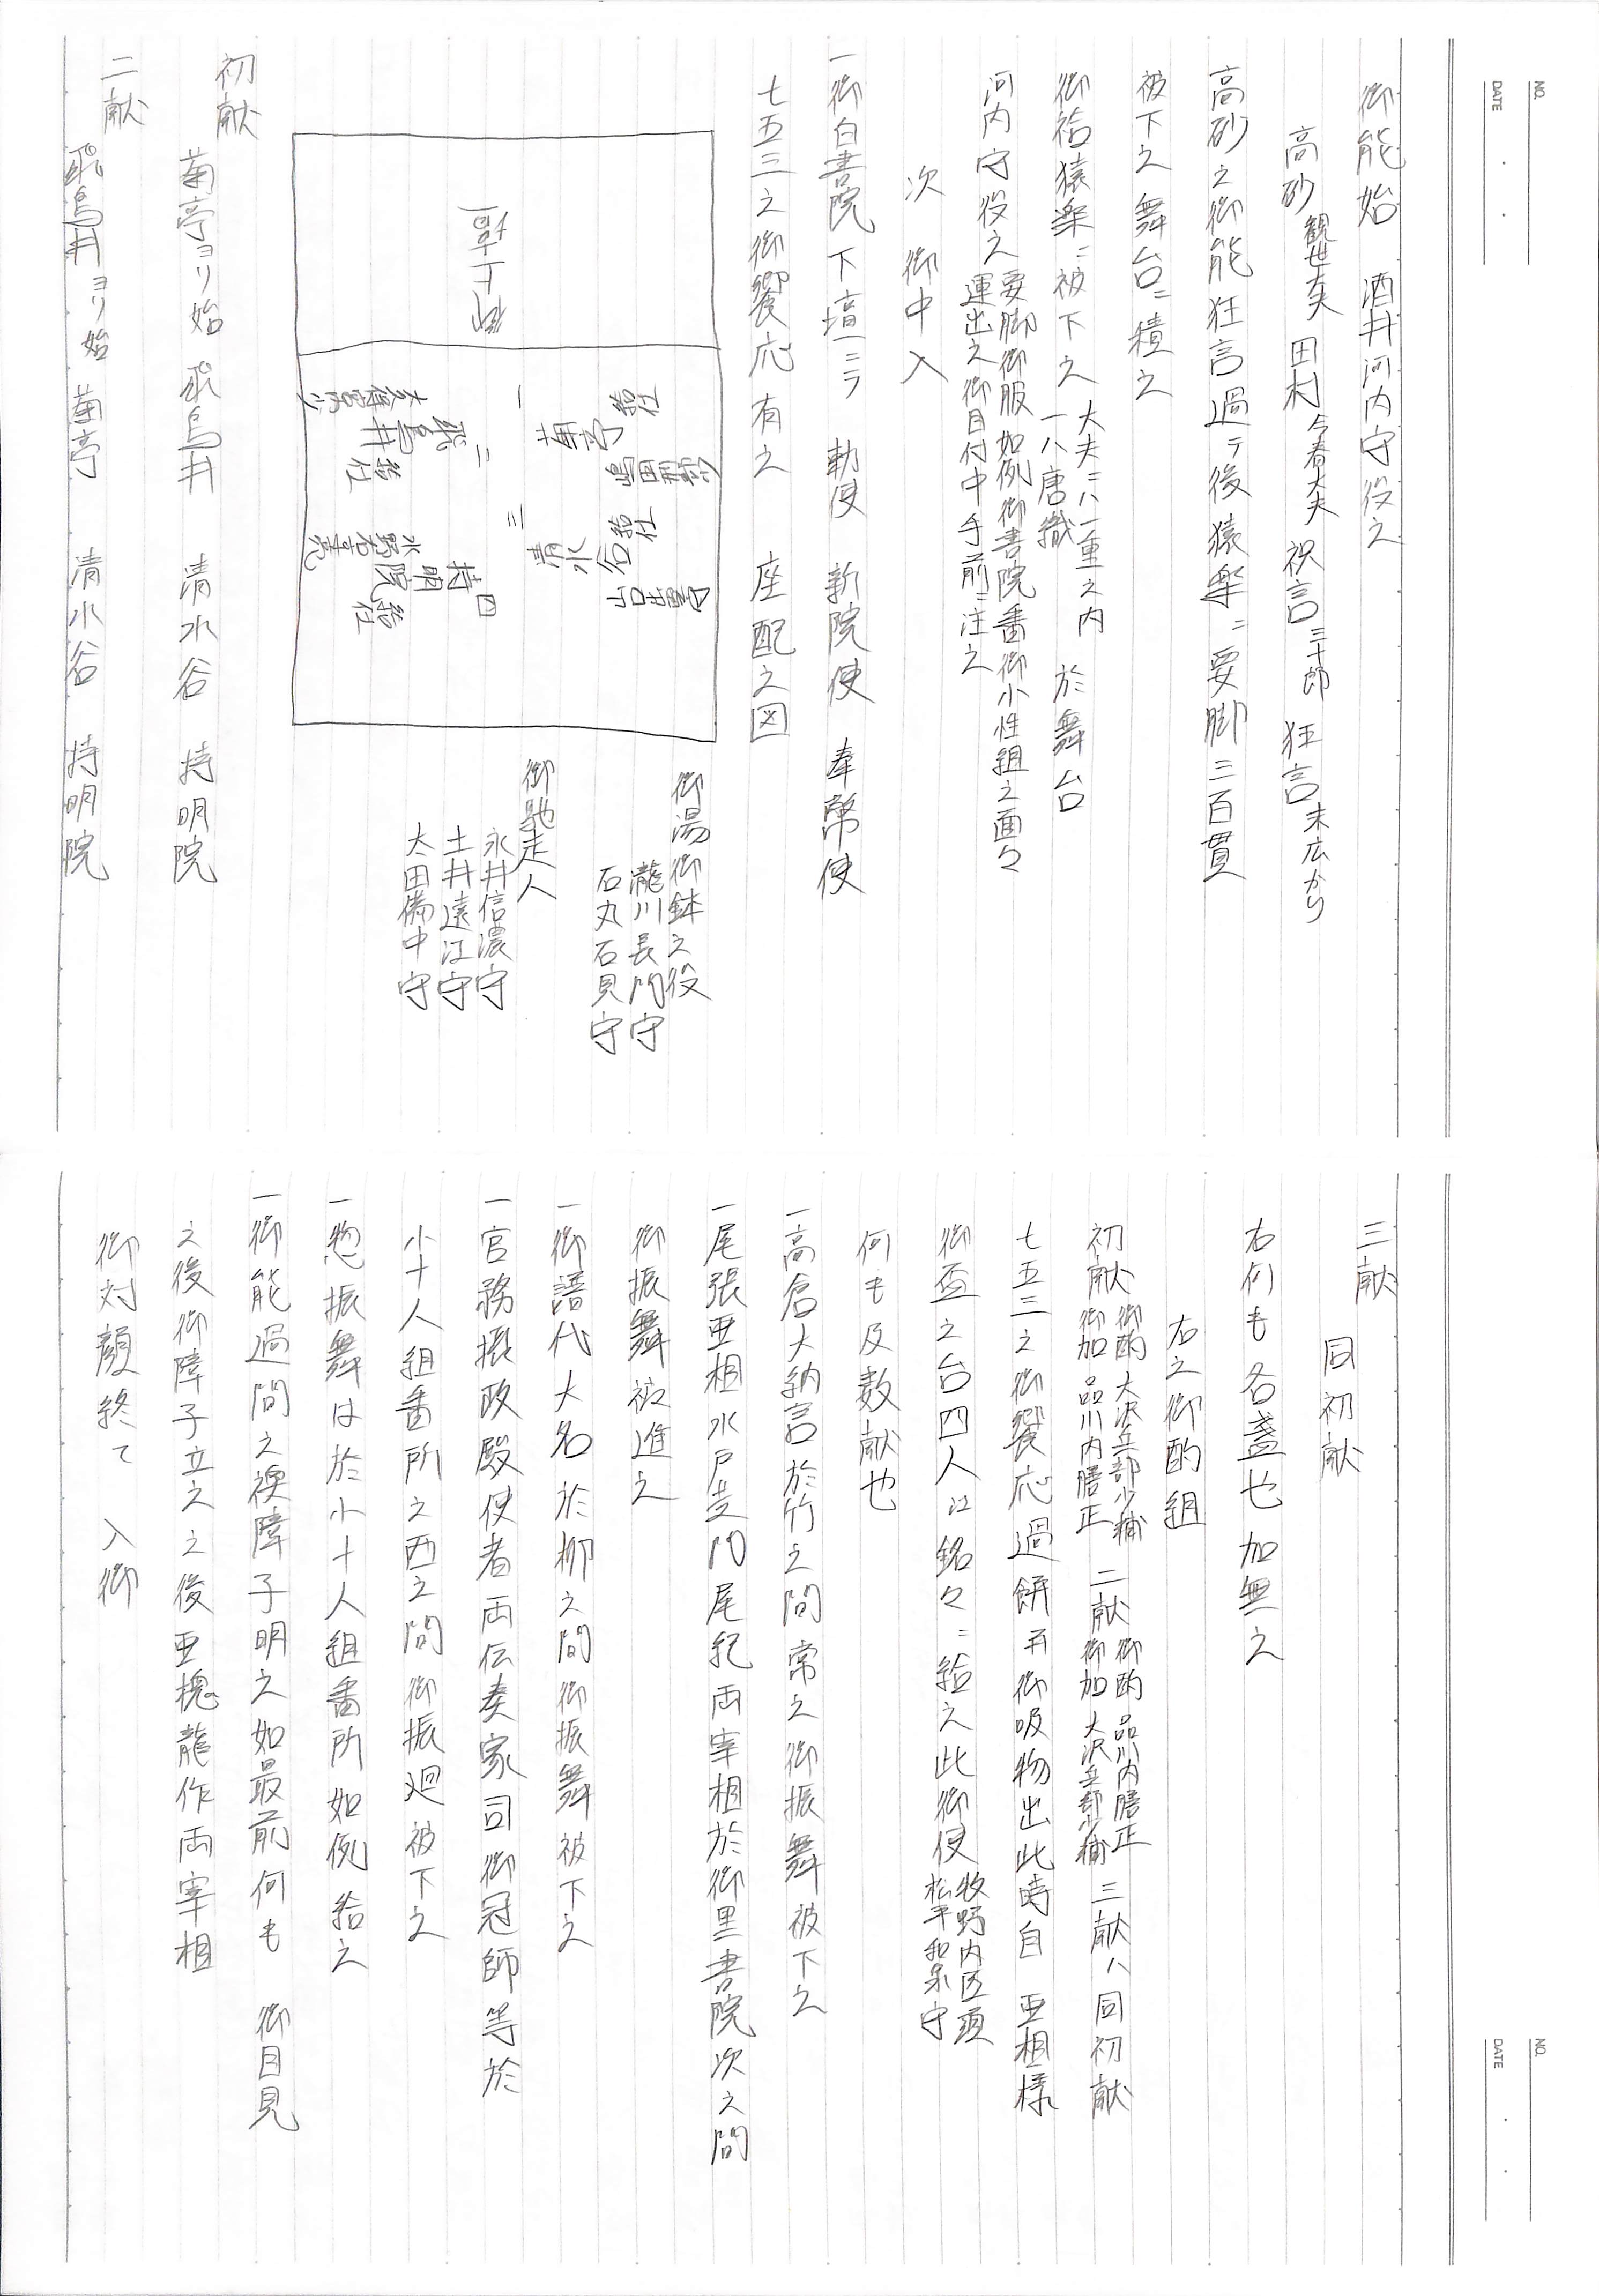 NO.
DATE
御能始　酒井河内守役之
高砂 観世大夫　田村 今春大夫　祝言 三十郎　狂言 末広かり
高砂之御能狂言過テ後猿楽ニ要脚三百貫
被下之舞台ニ積之
御祐猿楽ニ被下之 大夫ニハ一重之内 一八唐織　於舞台
河内守役之 要脚御服如例御書院番御小性組之面々 運出之御目付中手前ニ注之
次　御中入
一御白書院下壇ニテ　勅使　新院使　奉幣使
七五三之御饗応有之　座配之図
御下壇
一
二
飛鳥井
給仕
三
清水谷
四
持明院
給仕
御湯御鉢之役
瀧川長門守
石丸石見守
御馳走人
永井信濃守
土井遠江守
太田備中守
初献
菊亭ヨリ始　飛鳥井　清水谷　持明院
二献
飛鳥井ヨリ始　菊亭　清水谷　持明院
NO.
DATE
三献
同初献
右何も各盞也加無之
右之御酌組
初献 御酌 大沢兵部少輔 御加 品川内膳正　二献 御酌 品川内膳正 御加 大沢兵部少輔　三献ハ同初献
七五三之御饗応過餅并御吸物出此時自　亜相様
御盃之台四人江銘々ニ給之此御使 牧野内匠頭 松平和泉守
何も及数献也
一高倉大納言於竹之間常之御振舞被下之
一尾張亜相水戸黄門尾紀両宰相於御黒書院次之間
御振舞被進之
一御譜代大名於柳之間御振舞被下之
一官務摂政殿使者両伝奏家司御冠師等於
小十人組番所之西之間御振廻被下之
一惣振舞は於小十人組番所如例給之
一御能過間之襖障子明之如最前何も　御目見
之後御障子立之之後亜槐龍作両宰相
御対顔終て　入御